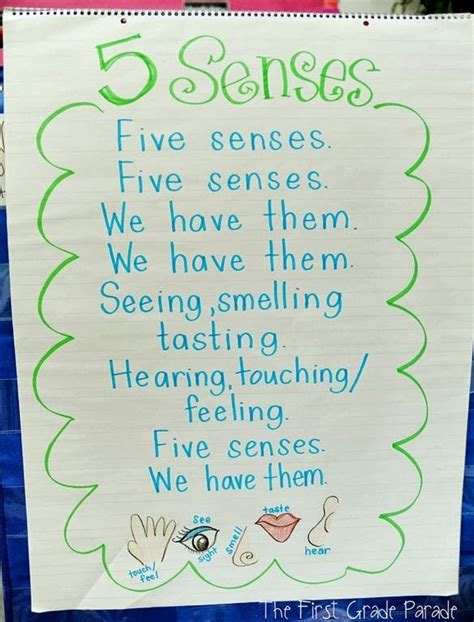 5 Senses
Five senses.
Five senses.
We have them.
We have them.
Seeing, smelling
tasting.
Hearing, touching/
feeling.
Five senses.
We have them.
touch/
feel
see
sight
smell
taste
hear
The First Grade Parade